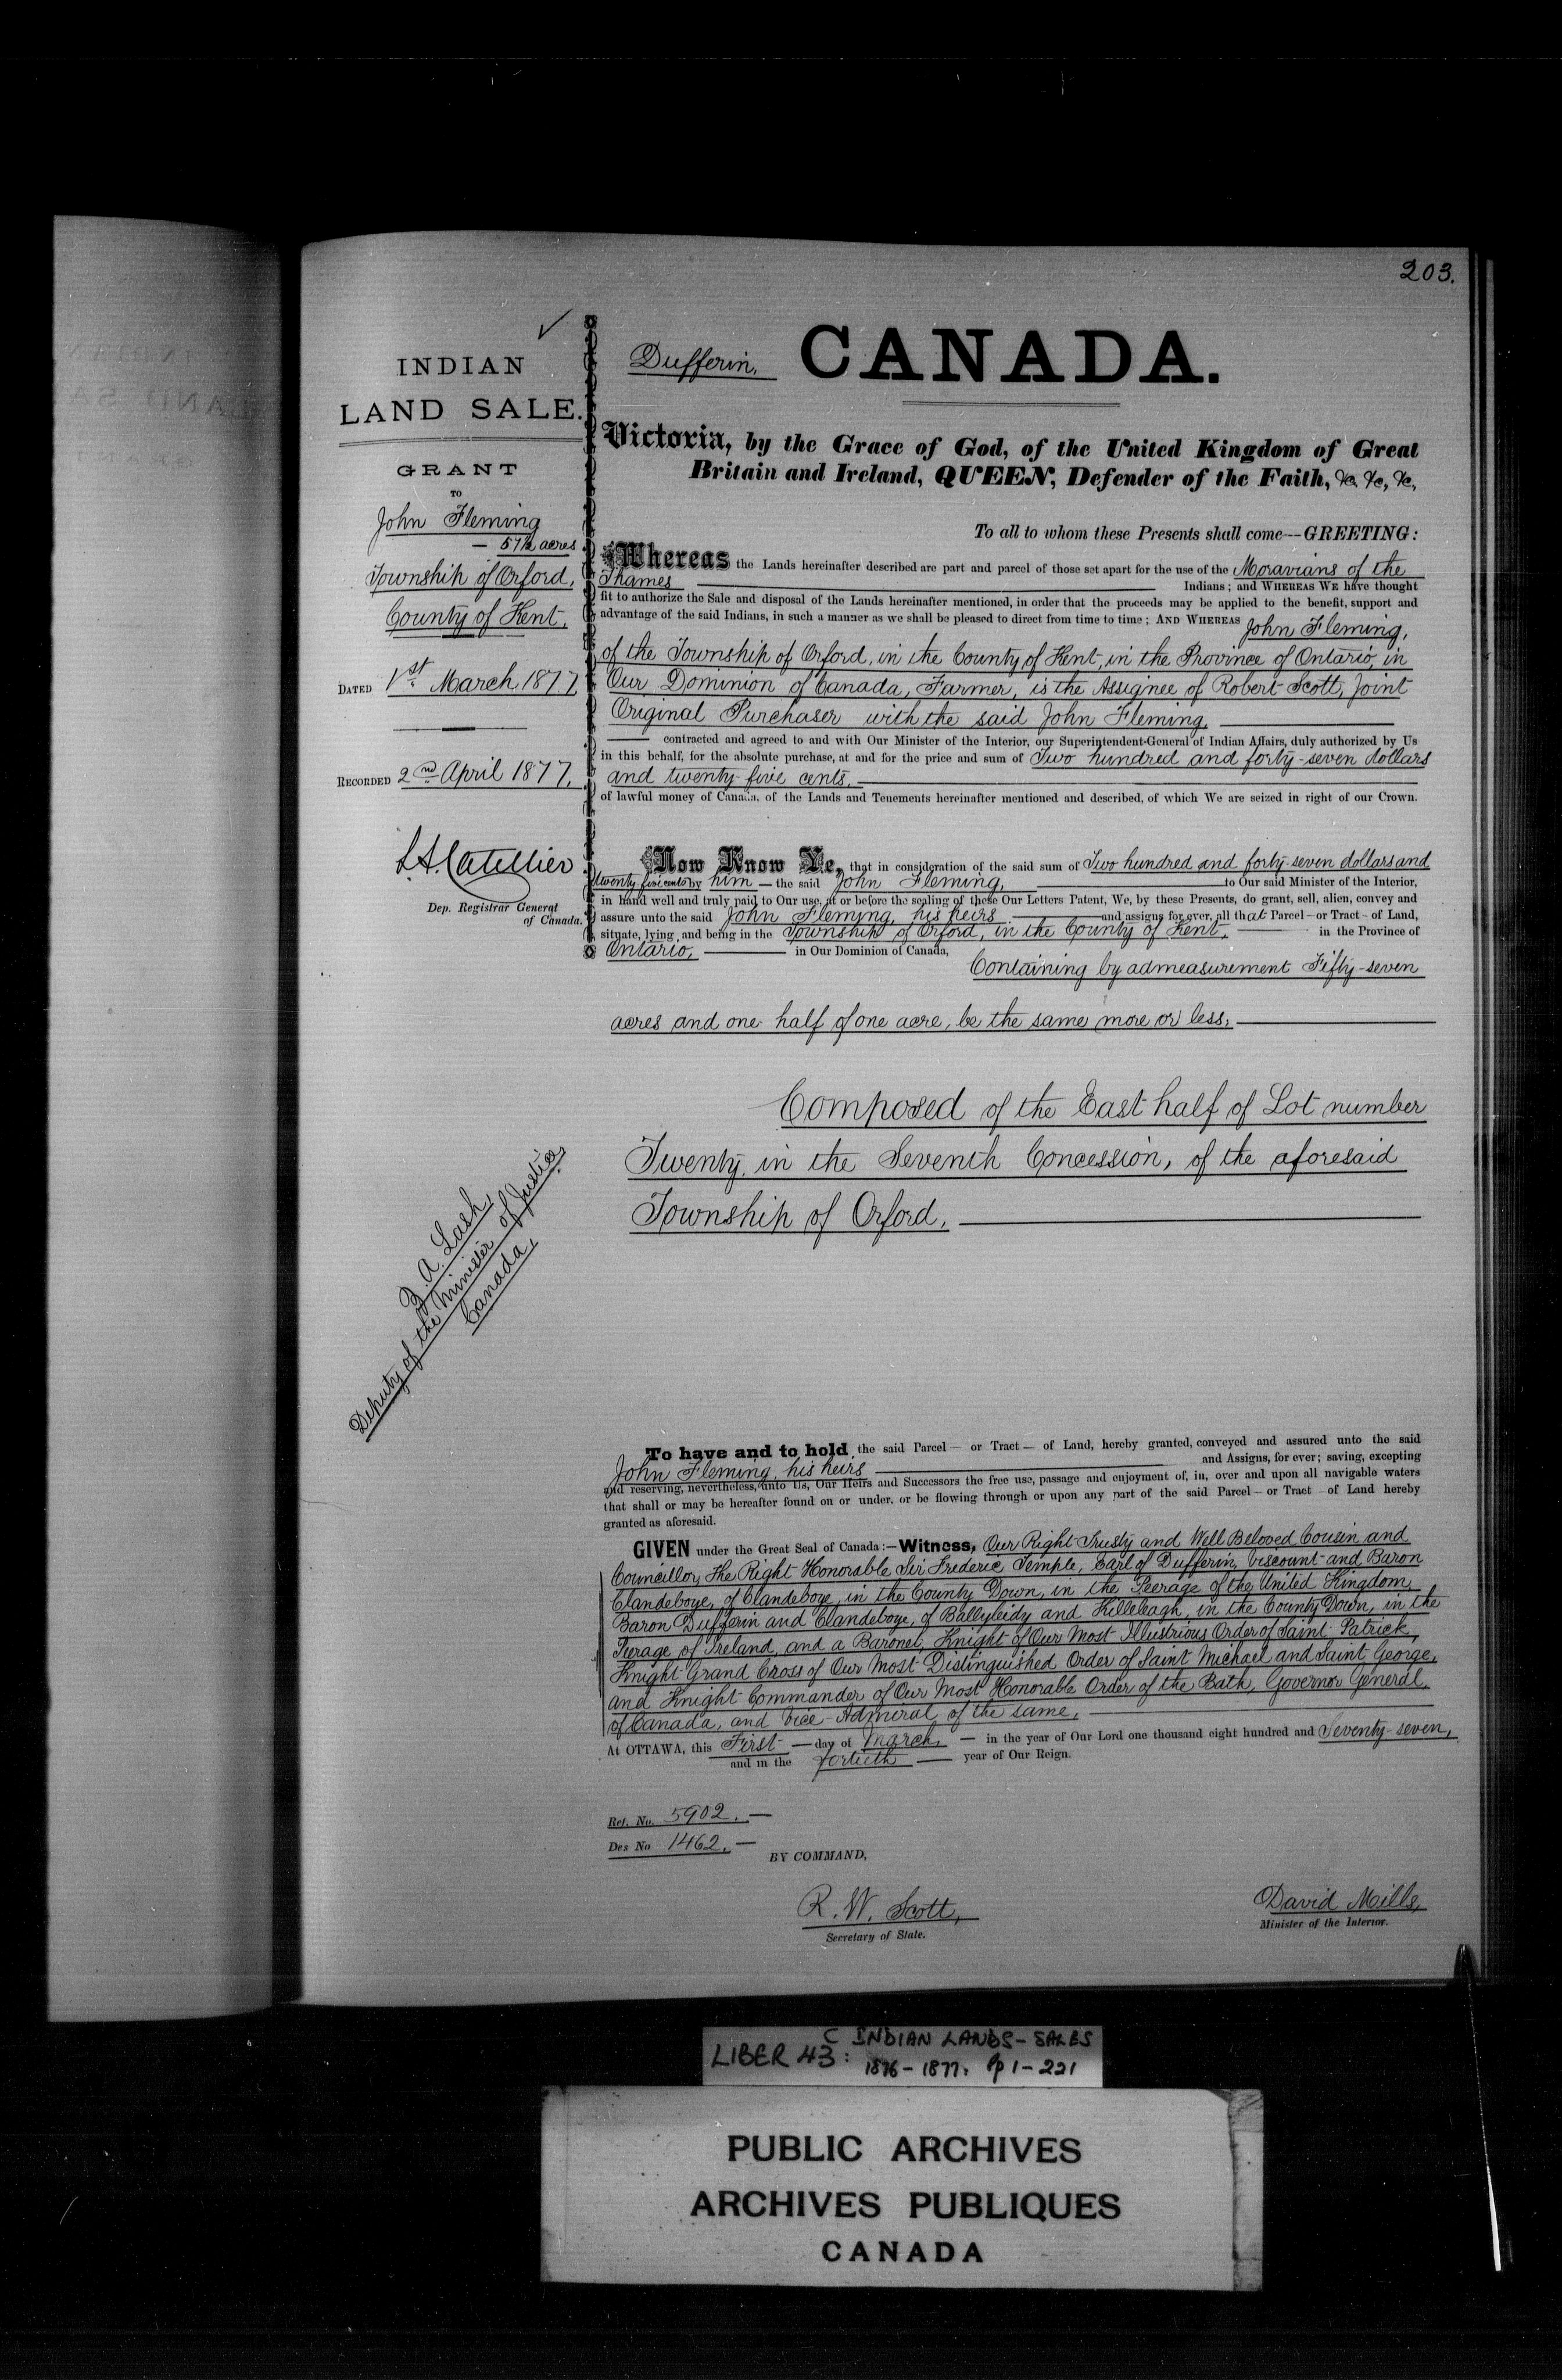 203.
INDIAN
LAND SALE.
GRANT
TO
John Fleming
— 57½ acres
Township of Orford,
County of Kent.
DATED 1st March 1877
RECORDED 2nd April 1877.
L.A. Catellier
Dep. Registrar General
of Canada.
Z. A. Lash,
Deputy of the Minister of Justice,
Canada.
Dufferin. CANADA.
Victoria, by the Grace of God, of the United Kingdom of Great
Britain and Ireland, QUEEN, Defender of the Faith, &c, &c, &c,
To all to whom these Presents shall come---GREETING:
Whereas the Lands hereinafter described are part and parcel of those set apart for the use of the Moravians of the
Thames Indians; and WHEREAS WE have thought
fit to authorize the Sale and disposal of the Lands hereinafter mentioned, in order that the proceeds may be applied to the benefit, support and
advantage of the said Indians, in such a manner as we shall be pleased to direct from time to time; AND WHEREAS John Fleming,
of the Township of Orford, in the County of Kent, in the Province of Ontario, in
Our Dominion of Canada, Farmer, is the Assignee of Robert Scott, Joint
Original Purchaser with the said John Fleming,
contracted and agreed to and with Our Minister of the Interior, our Superintendent-General of Indian Affairs, duly authorized by Us
in this behalf, for the absolute purchase, at and for the price and sum of Two hundred and forty-seven dollars
and twenty-five cents,
of lawful money of Canada, of the Lands and Tenements hereinafter mentioned and described, of which We are seized in right of our Crown.
Now Know Ye, that in consideration of the said sum of Two hundred and forty-seven dollars and
twenty five cents by him — the said John Fleming, to Our said Minister of the Interior,
in hand well and truly paid to Our use, at or before the sealing of these Our Letters Patent, We, by these Presents, do grant, sell, alien, convey and
assure unto the said John Fleming, his heirs and assigns for ever, all that Parcel — or Tract — of Land,
situate, lying and being in the Township of Orford, in the County of Kent, in the Province of
Ontario, in Our Dominion of Canada,
Containing by admeasurement Fifty-seven
acres and one half of one acre, be the same more or less,
Composed of the East half of Lot number
Twenty, in the Seventh Concession, of the aforesaid
Township of Orford,
To have and to hold the said Parcel — or Tract — of Land, hereby granted, conveyed and assured unto the said
John Fleming, his heirs and Assigns, for ever; saving, excepting
and reserving, nevertheless, unto Us, Our Heirs and Successors the free use, passage and enjoyment of, in, over and upon all navigable waters
that shall or may be hereafter found on or under, or be flowing through or upon any part of the said Parcel — or Tract — of Land hereby
granted as aforesaid.
GIVEN under the Great Seal of Canada:—Witness, Our Right Trusty and Well Beloved Cousin and
Councillor, The Right Honorable Sir Frederic Temple, Earl of Dufferin, Viscount and Baron
Clandeboye, of Clandeboye, in the County Down, in the Peerage of the United Kingdom,
Baron Dufferin and Clandeboye, of Ballyleidy and Killeleagh, in the County Down, in the
Peerage of Ireland, and a Baronet, Knight of Our Most Illustrious Order of Saint Patrick,
Knight Grand Cross of Our Most Distinguished Order of Saint Michael and Saint George,
and Knight Commander of Our Most Honorable Order of the Bath, Governor General
of Canada, and Vice-Admiral of the same,
At OTTAWA, this First — day of March, — in the year of Our Lord one thousand eight hundred and Seventy-seven,
and in the fortieth — year of Our Reign.
Ref. No. 5902. —
Des No 1462. —
BY COMMAND,
R. W. Scott,
Secretary of State.
David Mills,
Minister of the Interior.
LIBER 43: C INDIAN LANDS - SALES
1876 - 1877. Pp 1 - 221
PUBLIC ARCHIVES
ARCHIVES PUBLIQUES
CANADA